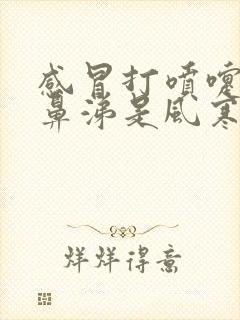 感冒打噴嚏
鼻涕是風寒
烊烊得意